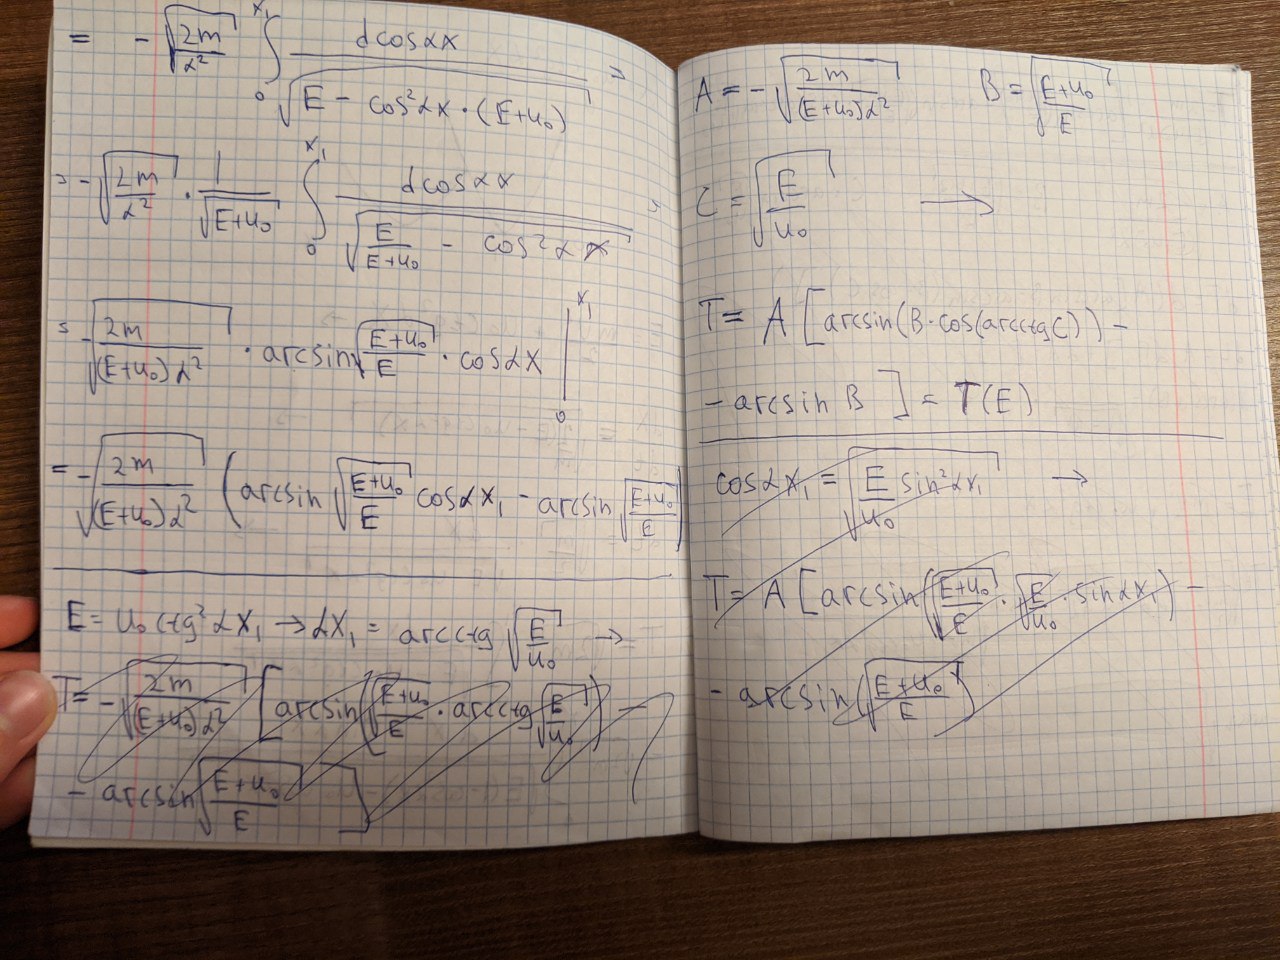 = - √(2m/α²) ∫₀^x₁ dcosαx / √(E - cos²αx·(E+u₀)) =
= - √(2m/α²) · 1/√(E+u₀) ∫₀^x₁ dcosαx / √(E/(E+u₀) - cos²αx) =
= - √(2m/((E+u₀)α²)) · arcsin√((E+u₀)/E) · cosαx |₀^x₁
= - √(2m/((E+u₀)α²)) (arcsin √((E+u₀)/E) cosαx₁ - arcsin √((E+u₀)/E))
E = u₀ctg²αx₁ → αx₁ = arcctg √(E/u₀) →
T = - √(2m/((E+u₀)α²)) [arcsin(√((E+u₀)/E) · arcctg √(E/u₀)) -
- arcsin √((E+u₀)/E) ]
A = - √(2m/((E+u₀)α²)) B = √((E+u₀)/E)
C = √(E/u₀) →
T = A [arcsin(B·cos(arcctgC)) -
- arcsin B ] = T(E)
cosαx₁ = √(E/u₀ sin²αx₁) →
T = A [arcsin(√((E+u₀)/E) · √(E/u₀) · sinαx₁) -
- arcsin(√((E+u₀)/E))